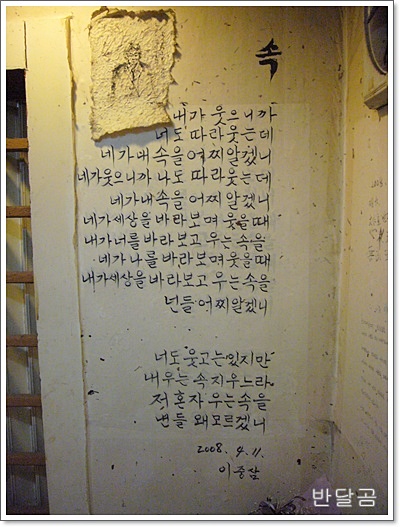 속
내가 웃으니까
너도 따라웃는데
네가 내 속을 어찌알겠니
네가웃으니까 나도 따라웃는데
네가내속을 어찌알겠니
네가세상을 바라보며 웃을때
내가너를 바라보고 우는 속을
네가 나를 바라보며 웃을때
내가세상을 바라보고 우는 속을
넌들 어찌알겠니
너도 웃고는있지만
내우는 속 지우느라
저 혼자 우는속을
낸들 왜모르겠니
2008. 4. 11.
이중삼
반달곰